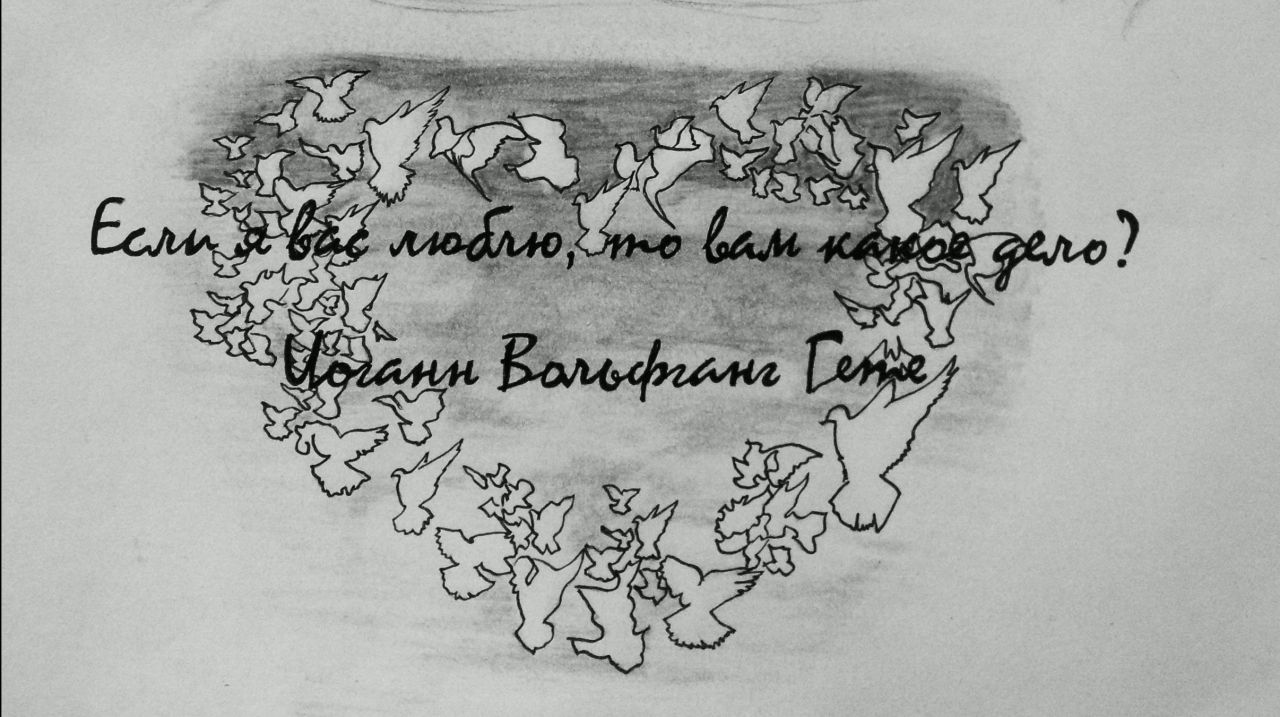 Если я вас люблю, то вам какое дело?
Иоганн Вольфганг Гете